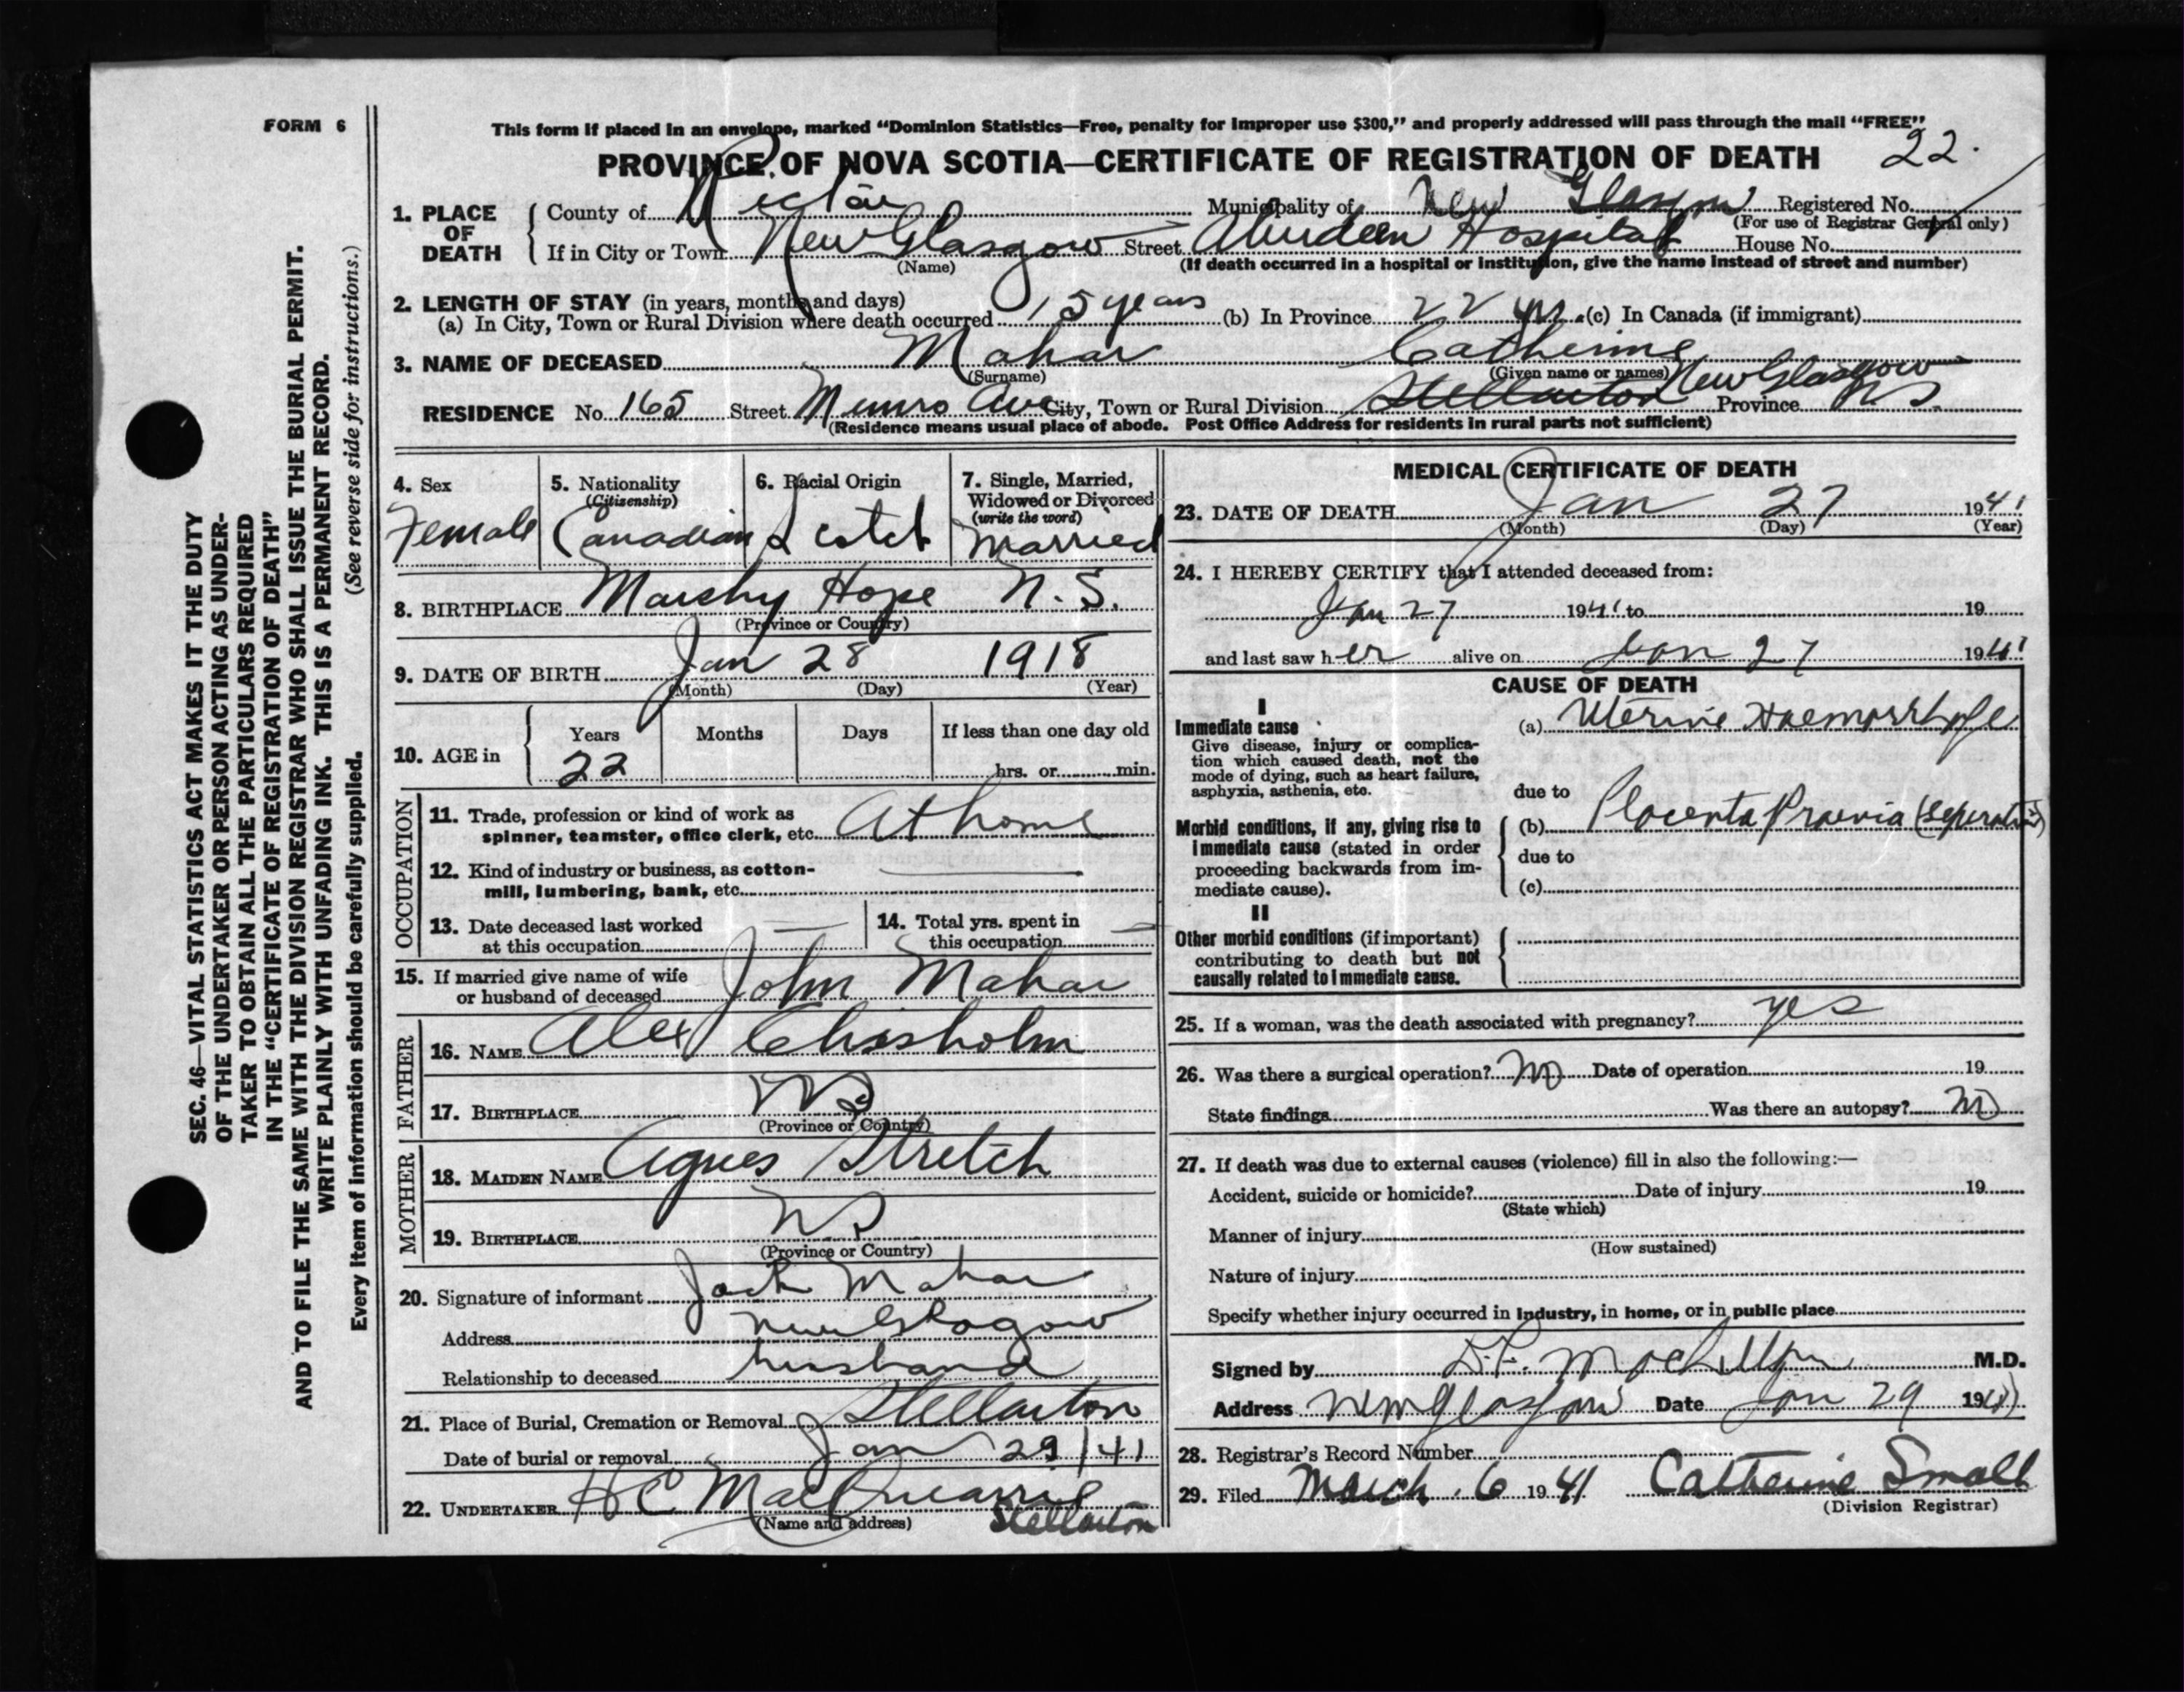 FORM 6
This form if placed in an envelope, marked "Dominion Statistics—Free, penalty for improper use $300," and properly addressed will pass through the mail "FREE"
PROVINCE OF NOVA SCOTIA—CERTIFICATE OF REGISTRATION OF DEATH 22.
1. PLACE OF DEATH
County of Pictou Municipality of New Glasgow Registered No.
(For use of Registrar General only)
If in City or Town New Glasgow Street Aberdeen Hospital House No.
(Name) (If death occurred in a hospital or institution, give the name instead of street and number)
2. LENGTH OF STAY (in years, months and days)
(a) In City, Town or Rural Division where death occurred 15 years (b) In Province 22 yrs. (c) In Canada (if immigrant)
3. NAME OF DECEASED Mahar Catherine
(Surname) (Given name or names) New Glasgow
RESIDENCE No. 165 Street Munro Ave City, Town or Rural Division Stellarton Province N S.
(Residence means usual place of abode. Post Office Address for residents in rural parts not sufficient)
4. Sex
Female
5. Nationality
(Citizenship)
Canadian
6. Racial Origin
Scotch
7. Single, Married,
Widowed or Divorced
(write the word)
Married
8. BIRTHPLACE Marshy Hope N.S.
(Province or Country)
9. DATE OF BIRTH Jan 28 1918
(Month) (Day) (Year)
10. AGE in
Years Months Days If less than one day old
22 hrs. or min.
OCCUPATION
11. Trade, profession or kind of work as
spinner, teamster, office clerk, etc. At home
12. Kind of industry or business, as cotton-
mill, lumbering, bank, etc. —
13. Date deceased last worked
at this occupation —
14. Total yrs. spent in
this occupation —
15. If married give name of wife
or husband of deceased John Mahar
FATHER
16. NAME Alex Chisholm
17. BIRTHPLACE N S
(Province or Country)
MOTHER
18. MAIDEN NAME Agnes Stretch
19. BIRTHPLACE N S
(Province or Country)
20. Signature of informant Jack Mahar
Address New Glasgow
Relationship to deceased husband
21. Place of Burial, Cremation or Removal Stellarton
Date of burial or removal Jan 29/41
22. UNDERTAKER H C MacQuarrie
(Name and address) Stellarton
MEDICAL CERTIFICATE OF DEATH
23. DATE OF DEATH Jan 27 1941
(Month) (Day) (Year)
24. I HEREBY CERTIFY that I attended deceased from:
Jan 27 1941 to 19
and last saw her alive on Jan 27 1941
CAUSE OF DEATH
I
Immediate cause
(a) Uterine Haemorrhage
Give disease, injury or complica-
tion which caused death, not the
mode of dying, such as heart failure,
asphyxia, asthenia, etc.
due to
Morbid conditions, if any, giving rise to
immediate cause (stated in order
proceeding backwards from im-
mediate cause).
(b) Placenta Praevia
due to
(c)
II
Other morbid conditions (if important)
contributing to death but not
causally related to immediate cause.
25. If a woman, was the death associated with pregnancy? yes
26. Was there a surgical operation? No Date of operation 19
State findings Was there an autopsy? No
27. If death was due to external causes (violence) fill in also the following:—
Accident, suicide or homicide? Date of injury 19
(State which)
Manner of injury
(How sustained)
Nature of injury
Specify whether injury occurred in industry, in home, or in public place
Signed by M.D.
Address New Glasgow Date Jan 29 1941
28. Registrar's Record Number
29. Filed March 6 1941 Catherine Small
(Division Registrar)
SEC. 46—VITAL STATISTICS ACT MAKES IT THE DUTY
OF THE UNDERTAKER OR PERSON ACTING AS UNDER-
TAKER TO OBTAIN ALL THE PARTICULARS REQUIRED
IN THE "CERTIFICATE OF REGISTRATION OF DEATH"
AND TO FILE THE SAME WITH THE DIVISION REGISTRAR WHO SHALL ISSUE THE BURIAL PERMIT.
WRITE PLAINLY WITH UNFADING INK. THIS IS A PERMANENT RECORD.
Every item of information should be carefully supplied. (See reverse side for instructions.)